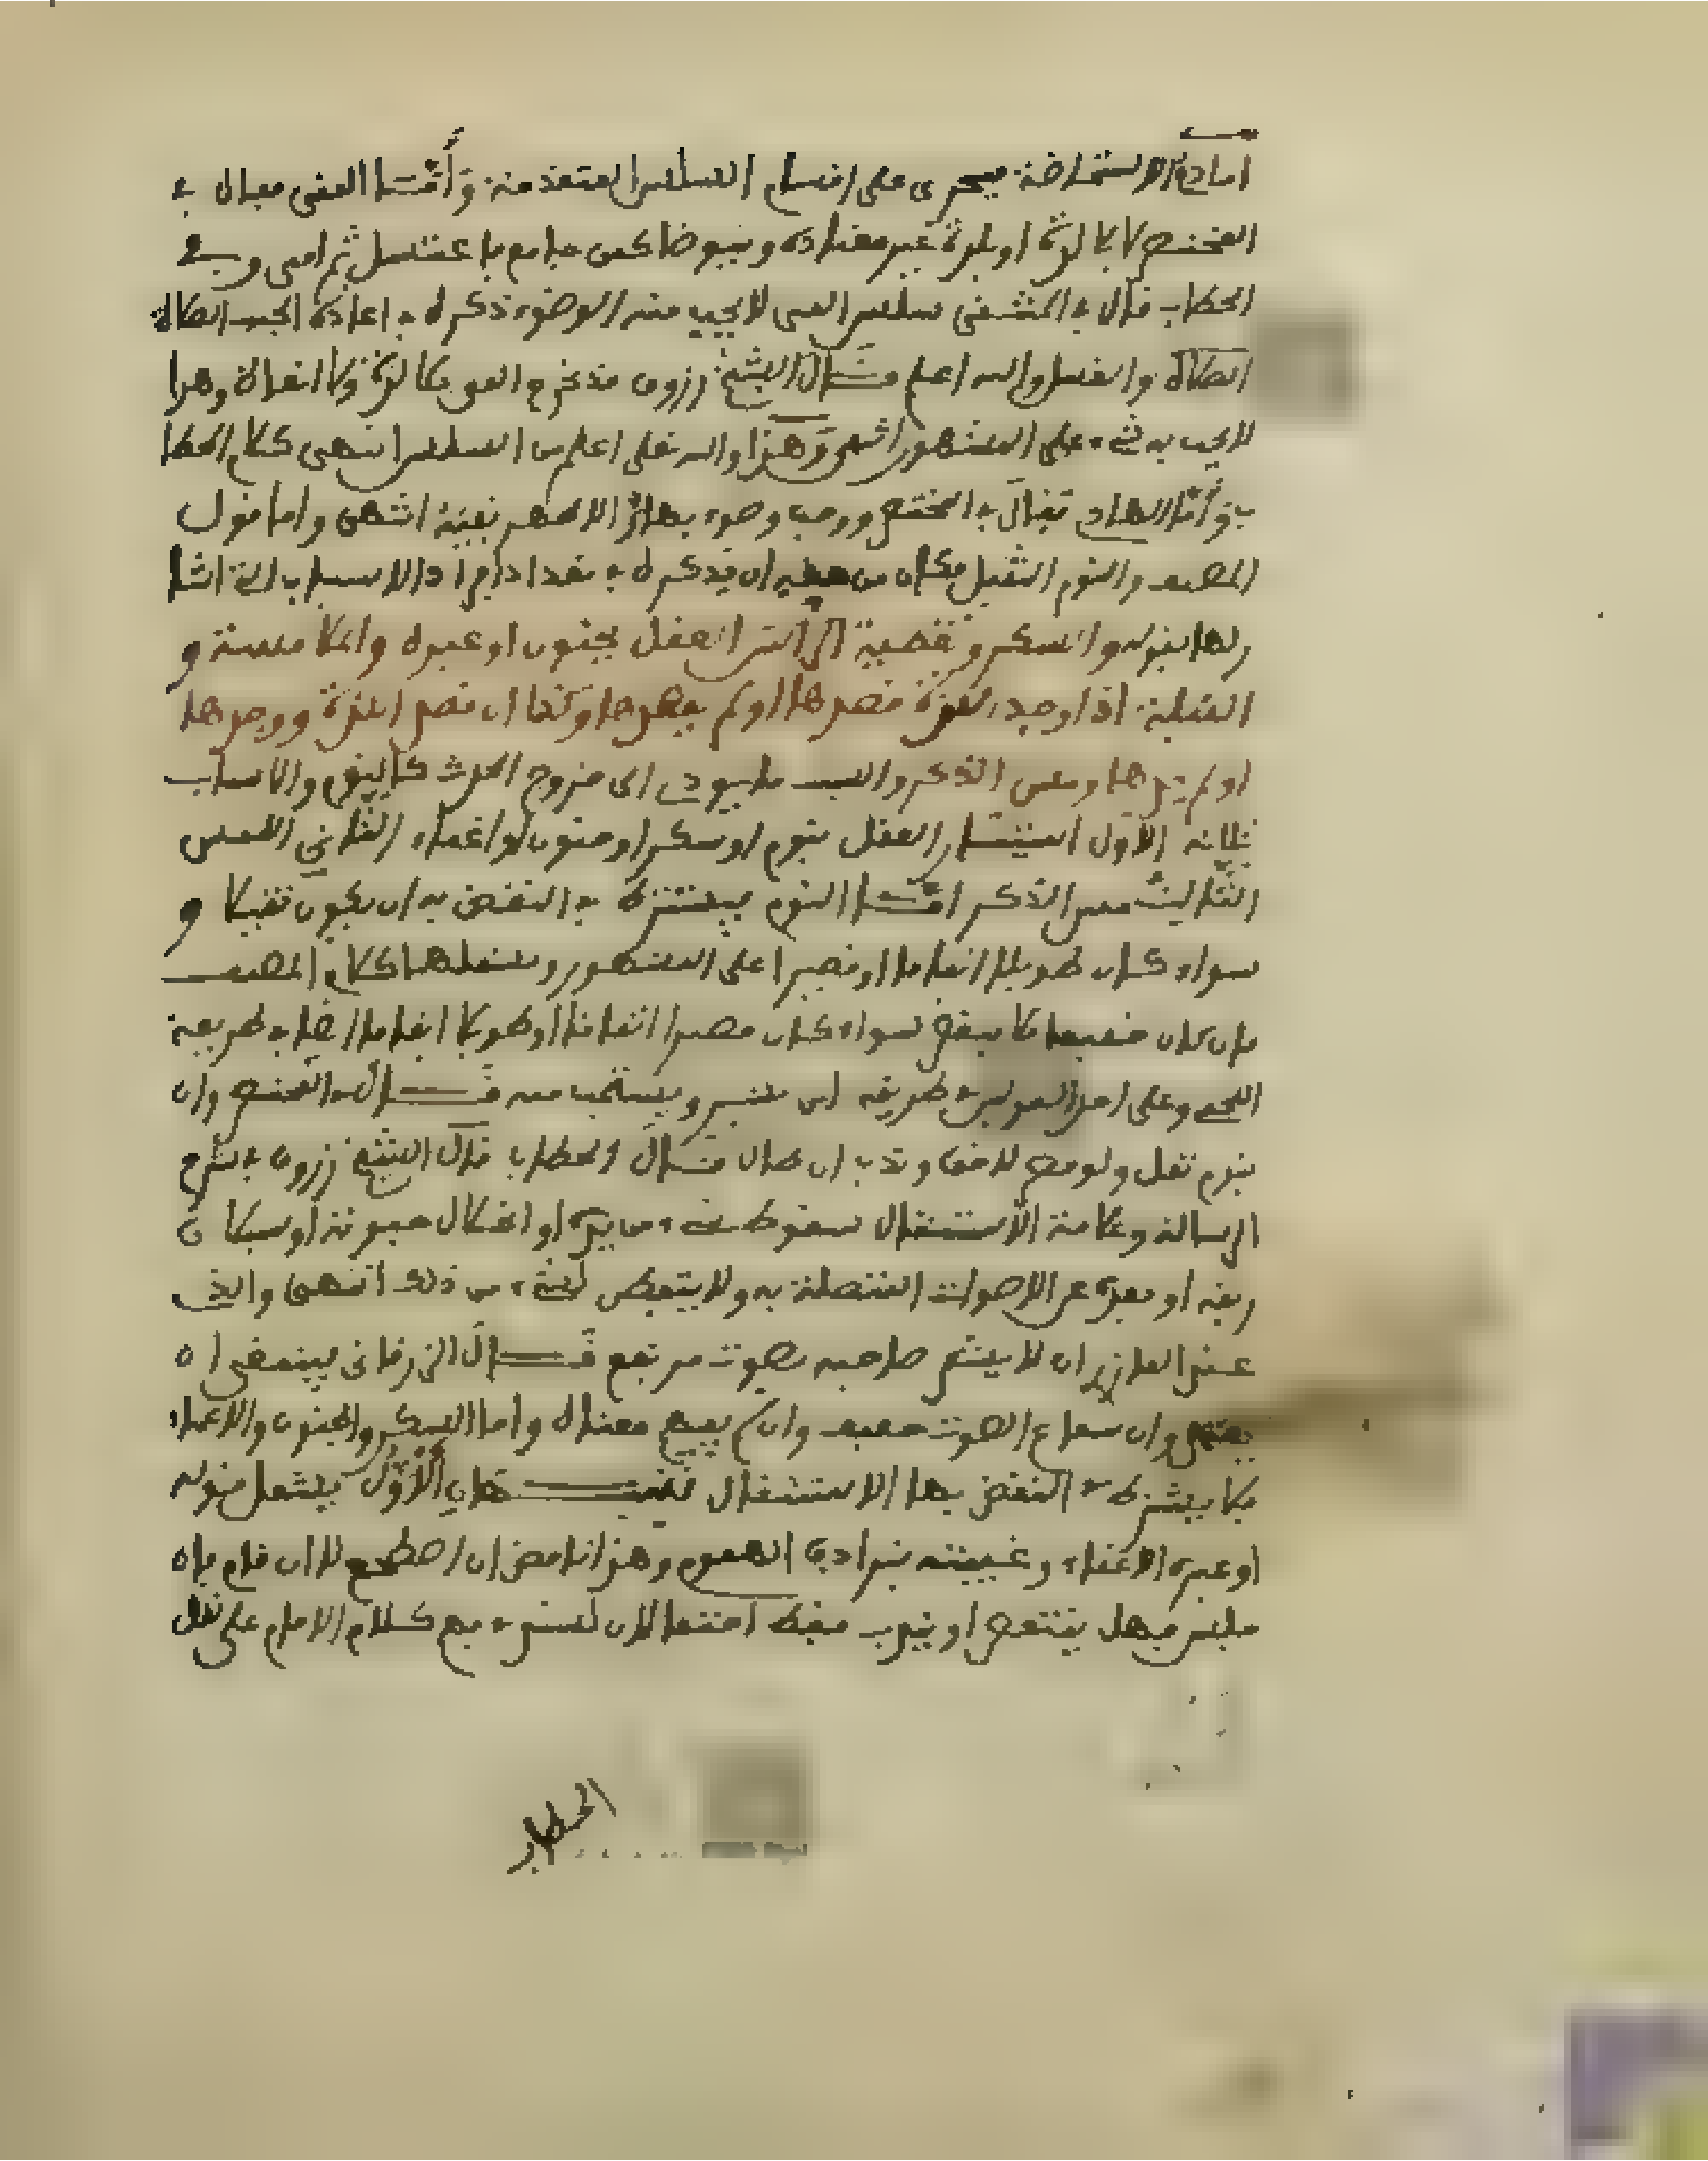 اما دم الاستحاضة فيجرى على اقسام السلس المتقدمة وأما المنى فقال في
المختصر لا بلا لذة او بلذة غير معتادة ويتوضأ كمن جامع فاغتسل ثم امنى وفي
الحطاب قال في سلس المنى لا يجب منه الوضوء ذكره في اعادة الصلاة
الصلاة والغسل والله اعلم قال الشيخ زروق قد يخرج المنى بلا لذة ولا انعاظ وهذا
لا يجب به شيء على المشهور انتهى وهذا والله تعلى اعلم من السلس انتهى كلام الحطا
ب وأما الهادى فقال في المختصر ووجب وضوء بهاد والاظهر نفيه انتهى واما قول
المصنف والنوم الثقيل فكان من حقه ان يذكره في تعداد افراد الاسباب التي اشا
ر لها بقوله والسكر وتغطية العقل بجنون او غيره والملامسة و
القبلة اذا وجد اللذة قصدها او لم يقصدها وكذا ان قصد اللذة ووجدها
او لم يجدها ومس الذكر والسبب ما يودى الى خروج الحدث كالنوم والاسباب
ثلاثة الاول استتار العقل بنوم او سكر او جنون او اغماء الثاني اللمس
الثالث مس الذكر أما النوم فيشترط في النقض به ان يكون ثقيلا و
سواء كان طويلا اتفاقا او قصيرا على المشهور ويشملها كلام المصنف
فان كان خفيفا فلا ينقض سواء كان قصيرا اتفاقا او طويلا اتفاقا ايضا في طريقة
اللخمي وعلى احد القولين في طريقة ابن بشير ويستحب منه قال في المختصر وان
بنوم ثقل ولو قصر لا خف وندب ان طال قال الحطاب قال الشيخ زروق في شرح
الرسالة وعلامة الاستثقال سقوط شيء من يده او انحلال حبوته او سيلان
ريقه او بعده عن الاصوات المتصلة به ولا يتفطن لشيء من ذلك انتهى والذي
عند المازري ان لا يشعر صاحبه بصوت مرتفع قال الزرقاني
وان سماع الصوت وان لم يفهم معناه واما السكر والجنون والاغماء
فلا يشترط في النقض بها الاستثقال تنبيهات الأول يشمل قوله
او غيره الاغماء وغيبته بترادف الهموم وهذا ناقض ان اضطجع لا ان قام فان
جلس فهل ينتقض او يندب فقط احتمالان لسند في فهم كلام الامام على نقل
الحطاب